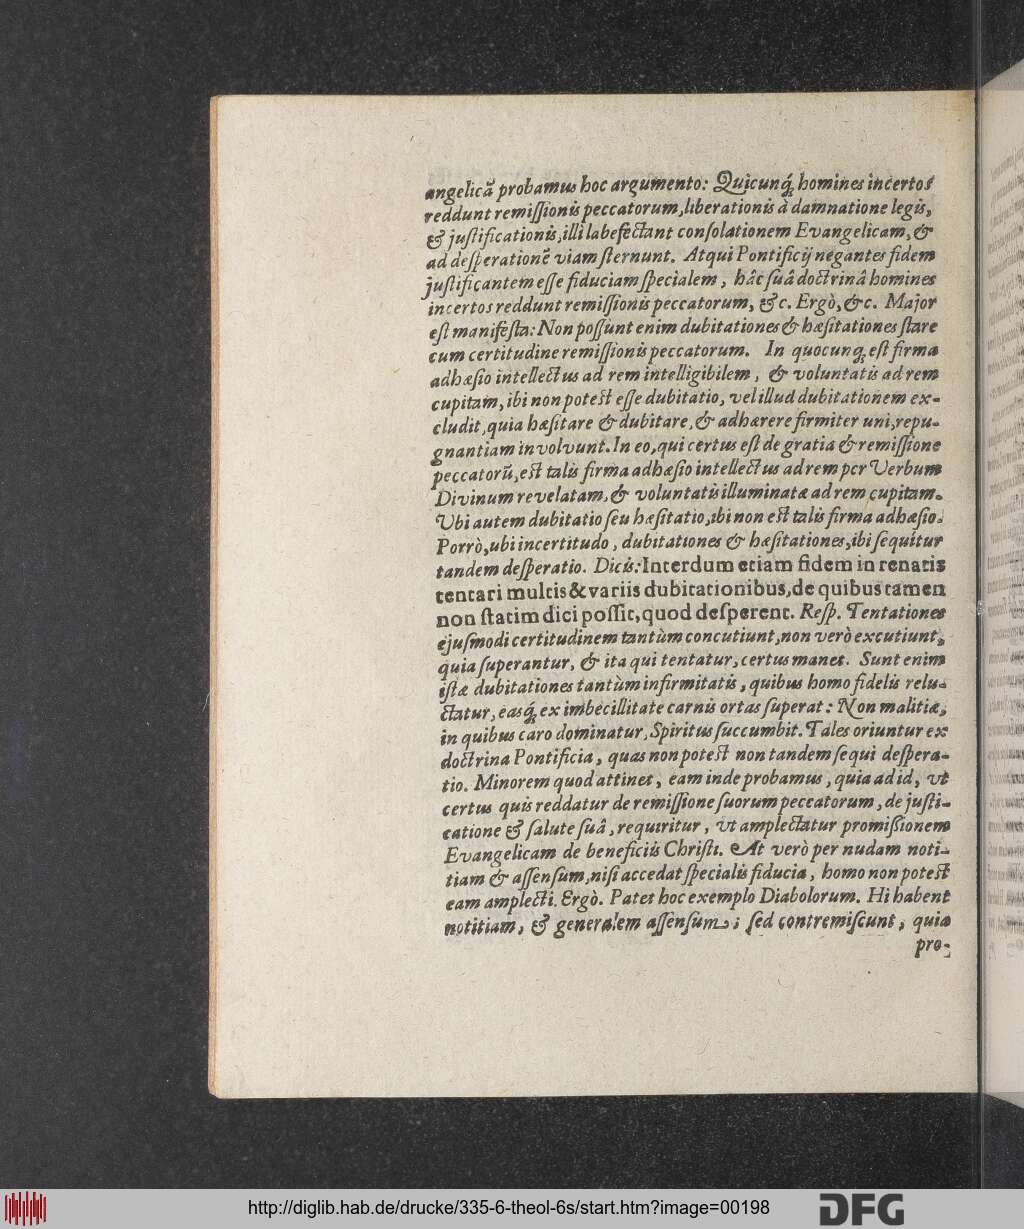 angelicã probamus hoc argumento: Quicunq́ꝫ homines incertos
reddunt remiſſionis peccatorum, liberationis à damnatione legis,
& juſtificationis, illi labefectant conſolationem Evangelicam, &
ad deſperationẽ viam ſternunt. Atqui Pontificij negantes fidem
juſtificantem eſſe fiduciam ſpecialem, hâc ſuâ doctrinâ homines
incertos reddunt remiſſionis peccatorum, &c. Ergò, &c. Major
eſt manifeſta: Non poſſunt enim dubitationes & hæſitationes ſtare
cum certitudine remiſſionis peccatorum. In quocunqꝫ eſt firma
adhæſio intellectus ad rem intelligibilem, & voluntatis ad rem
cupitam, ibi non poteſt eſſe dubitatio, vel illud dubitationem ex-
cludit, quia hæſitare & dubitare, & adhærere firmiter uni, repu-
gnantiam involvunt. In eo, qui certus eſt de gratia & remiſſione
peccatorũ, eſt talis firma adhæſio intellectus ad rem per Verbum
Divinum revelatam, & voluntatis illuminatæ ad rem cupitam.
Ubi autem dubitatio ſeu hæſitatio, ibi non eſt talis firma adhæſio.
Porrò, ubi incertitudo, dubitationes & hæſitationes, ibi ſequitur
tandem deſperatio. Dicis: Interdum etiam fidem in renatis
tentari multis & variis dubitationibus, de quibus tamen
non ſtatim dici poſſit, quod deſperent. Reſp. Tentationes
ejuſmodi certitudinem tantùm concutiunt, non verò excutiunt,
quia ſuperantur, & ita qui tentatur, certus manet. Sunt enim
iſtæ dubitationes tantùm infirmitatis, quibus homo fidelis relu-
ctatur, easq́ꝫ ex imbecillitate carnis ortas ſuperat: Non malitiæ,
in quibus caro dominatur, Spiritus ſuccumbit. Tales oriuntur ex
doctrina Pontificia, quas non poteſt non tandem ſequi deſpera-
tio. Minorem quod attinet, eam inde probamus, quia ad id, ut
certus quis reddatur de remiſſione ſuorum peccatorum, de juſti-
catione & ſalute ſuâ, requiritur, ut amplectatur promiſsionem
Evangelicam de beneficiis Chriſti. At verò per nudam noti-
tiam & aſſenſum, niſi accedat ſpecialis fiducia, homo non poteſt
eam amplecti. Ergò. Patet hoc exemplo Diabolorum. Hi habent
notitiam, & generalem aſſenſum; ſed contremiſcunt, quia
pro-
http://diglib.hab.de/drucke/335-6-theol-6s/start.htm?image=00198
DFG